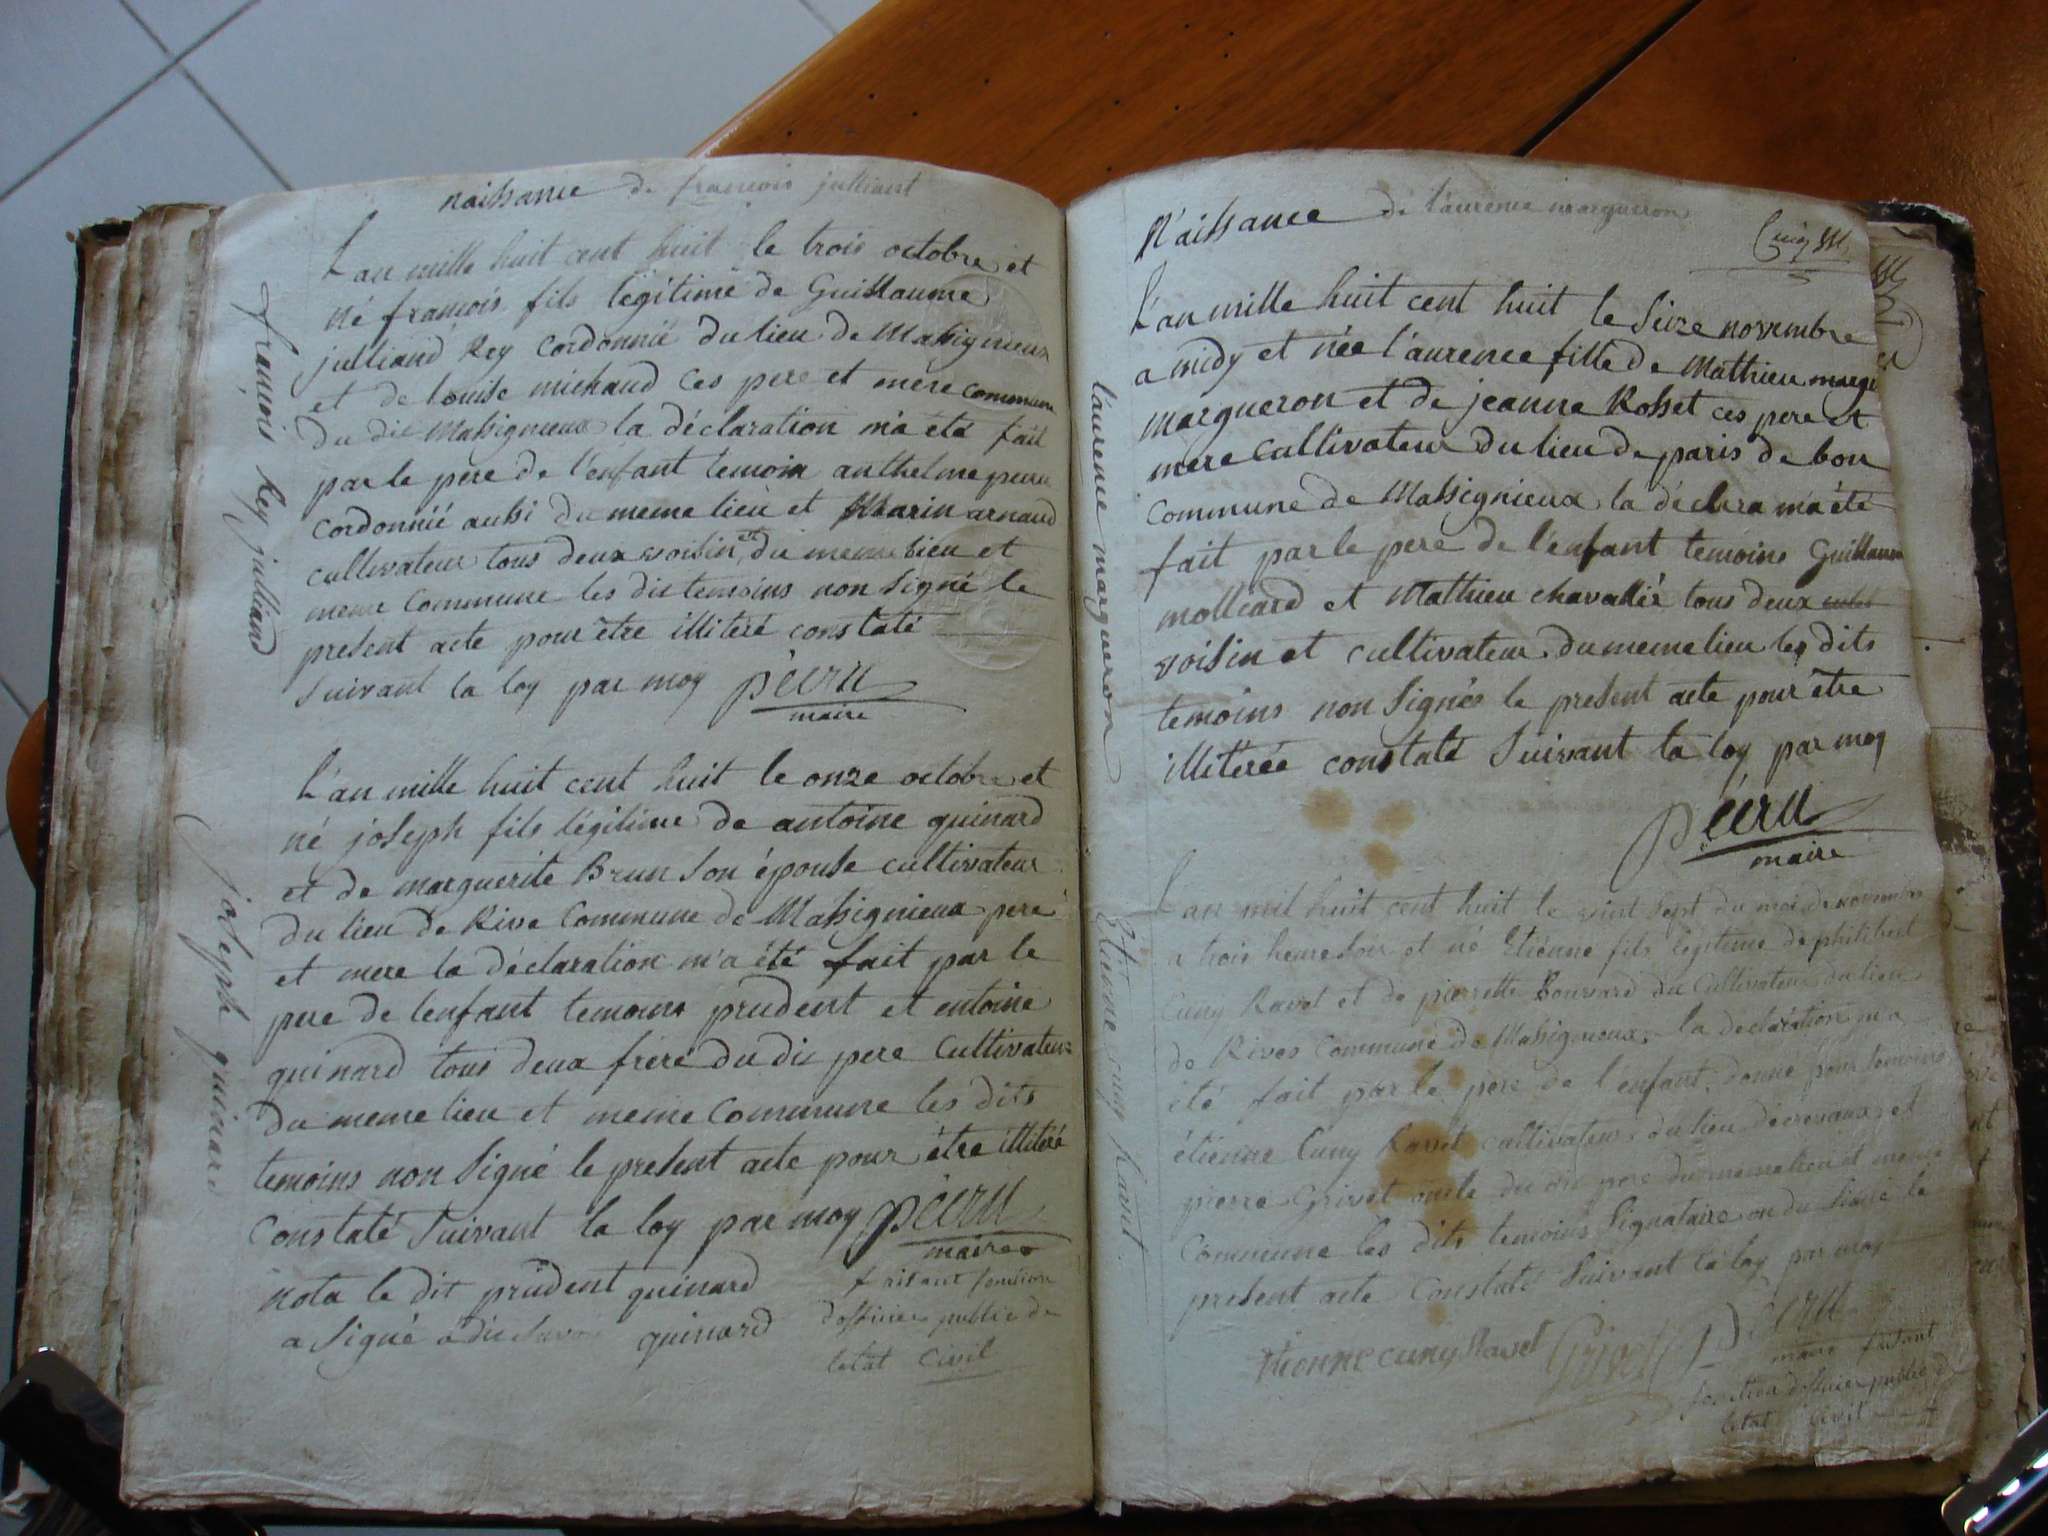 naissance de francois julliard
L'an mille huit cent huit le trois octobre et
né francois fils légitime de Guillaume
julliand Rey cordonnié du lieu de Massignieux
et de louise michaud ces pere et mere commune
du dit Massignieux la déclaration m'a été fait
par le pere de l'enfant temoin anthelme peeru
cordonnié aussi du meme lieu et Marin arnaud
cultivateur tous deux voisin et du meme lieu et
meme commune les dit temoins non signé le
present acte pour être illiteré constaté
suivant la loy par moy péeru
maire
françois Rey julliand
L'an mille huit cent huit le onze octobre et
né joseph fils légitime de antoine quinard
et de marguerite Brun son épouse cultivateur
du lieu de Rive Commune de Massignieux pere
et mere la déclaration m'a été fait par le
pere de lenfant temoins prudent et entoine
quinard tous deux frere du di pere cultivateur
du meme lieu et meme commune les dits
temoins non signé le present acte pour être illiteré
Constaté suivant la loy par moy péeru
maire
faisant fonction
d'officier public de
letat civil
Nota le dit prudent quinard
a signé a di savoi quinard
joseph quinard
N'aissance de l'aurence margueron
Cinq
L'an mille huit cent huit le seize novembre
a midy et née l'aurence fille de Mathieu marge
margueron et de jeanne Rosset ces pere et
mere cultivateur du lieu de paris de bou
commune de Massignieux la déclara m'a été
fait par le pere de l'enfant temoins Guillaume
molliard et Mathieu chavallié tous deux
voisin et cultivateur du meme lieu les dits
temoins non signés le present acte pour être
illiterée constaté suivant la loy par moy
péeru
maire
l'aurence margueron
L'an mil huit cent huit le vint sept du moi de novembre
a trois heure soir et né Etienne fils légitime de philibert
Cuny Ravet et de pierrette Bouvard du Cultivateur du lieu
de Rives Commune de Massignieux la declaration m'a
été fait par le pere de l'enfant donné pour temoins
étienne Cuny Ravet cultivateur du lieu de crevaux et
pierre Grivet oncle du dit pere du meme lieu et meme
Commune les dits temoins signataire on du signé le
present acte Constaté suivant la loy par moy
Etienne cuny Ravet Péeru
maire faisant
fonction d'officier public de
letat civil
Etienne cuny Ravet